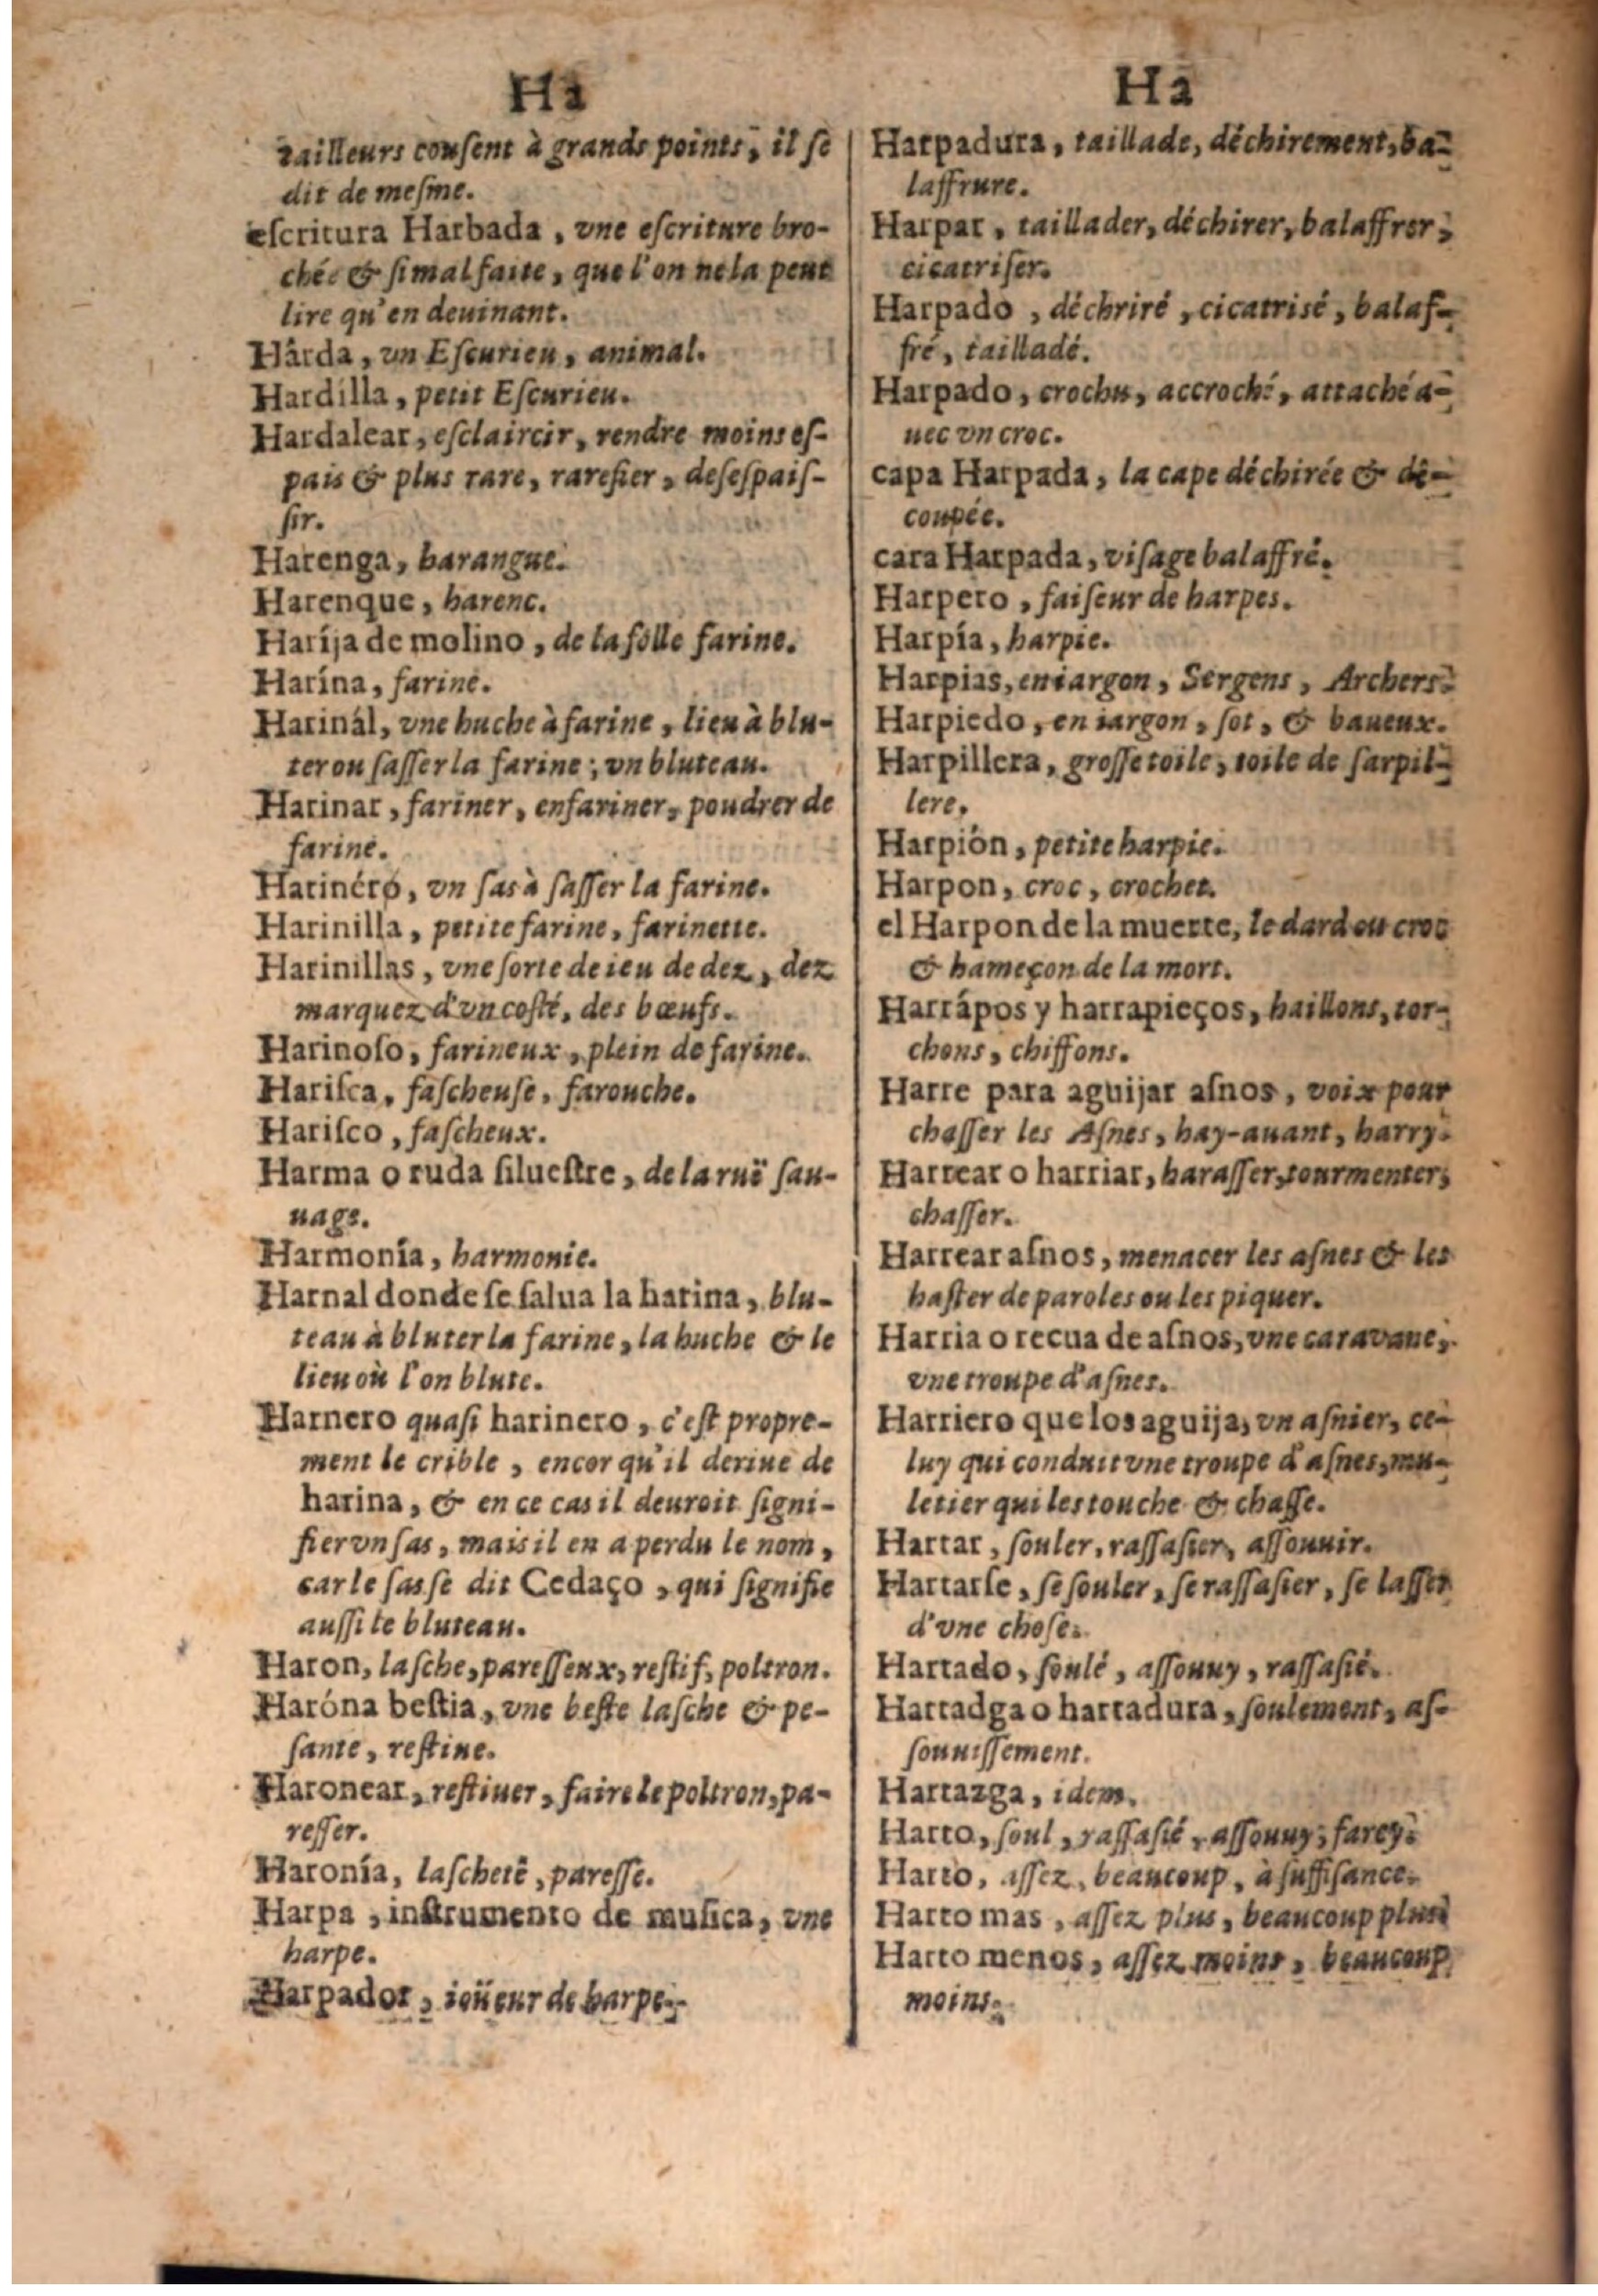 Ha
tailleurs cousent à grands points, il se
dit de meſme.
eſcritura Harbada, vne eſcriture bro-
chée & ſi mal faite, que l'on ne la peut
lire qu'en deuinant.
Hârda, vn Eſcurieu, animal.
Hardilla, petit Eſcurieu.
Hardalear, eſclaircir, rendre moins eſ-
pais & plus rare, rarefier, deseſpaiſ-
ſir.
Harenga, harangue.
Harenque, harenc.
Haríja de molino, de la folle farine.
Harína, farine.
Harinál, vne huche à farine, lieu à blu-
ter ou ſaſſer la farine, vn bluteau.
Harinar, fariner, enfariner, poudrer de
farine.
Harinéro, vn ſas à ſaſſer la farine.
Harinilla, petite farine, farinette.
Harinillas, vne ſorte de ieu de dez, dez
marquez d'vn coſté, des bœufs.
Harinoſo, farineux, plein de farine.
Hariſca, faſcheuſe, farouche.
Hariſco, faſcheux.
Harma o ruda ſilueſtre, de la ruë ſau-
uage.
Harmonía, harmonie.
Harnal donde ſe ſalua la harina, blu-
teau à bluter la farine, la huche & le
lieu où l'on blute.
Harnero quaſi harinero, c'eſt propre-
ment le crible, encor qu'il deriue de
harina, & en ce cas il deuroit ſigni-
fier vn ſas, mais il en a perdu le nom,
car le ſas ſe dit Cedaço, qui ſignifie
auſſi le bluteau.
Haron, laſche, pareſſeux, reſtif, poltron.
Haróna beſtia, vne beſte laſche & pe-
ſante, reſtiue.
Haronear, reſtiuer, faire le poltron, pa-
reſſer.
Haronía, laſcheté, pareſſe.
Harpa, inſtrumento de muſica, vne
harpe.
Harpador, ioüeur de harpe.
Ha
Harpadura, taillade, déchirement, ba-
laffrure.
Harpar, taillader, déchirer, balaffrer,
cicatriſer.
Harpado, déchriré, cicatrisé, balaf-
fré, tailladé.
Harpado, crochu, accroché, attaché a-
uec vn croc.
capa Harpada, la cape déchirée & dé-
coupée.
cara Harpada, viſage balaffré.
Harpero, faiſeur de harpes.
Harpía, harpie.
Harpias, en iargon, Sergens, Archers.
Harpiedo, en iargon, ſot, & baueux.
Harpillera, groſſe toile, toile de ſarpil-
lere.
Harpión, petite harpie.
Harpon, croc, crochet.
el Harpon de la muerte, le dard ou croc
& hameçon de la mort.
Harrápos y harrapieços, haillons, tor-
chons, chiffons.
Harre para aguijar aſnos, voix pour
chaſſer les Aſnes, hay-auant, harry.
Harrear o harriar, haraſſer, tourmenter,
chaſſer.
Harrear aſnos, menacer les aſnes & les
haſter de paroles ou les piquer.
Harria o recua de aſnos, vne carauane,
vne troupe d'aſnes.
Harriero que los aguija, vn aſnier, ce-
luy qui conduit vne troupe d'aſnes, mu-
letier qui les touche & chaſſe.
Hartar, ſouler, raſſaſier, aſſouuir.
Hartarſe, ſe ſouler, ſe raſſaſier, ſe laſſer
d'vne choſe.
Hartado, ſoulé, aſſouuy, raſſaſié.
Hartadga o hartadura, ſoulement, aſ-
ſouuiſſement.
Hartazga, idem.
Harto, ſoul, raſſaſié, aſſouuy, farcy.
Harto, aſſez, beaucoup, à ſuffiſance.
Harto mas, aſſez plus, beaucoup plus
Harto menos, aſſez moins, beaucoup
moins.